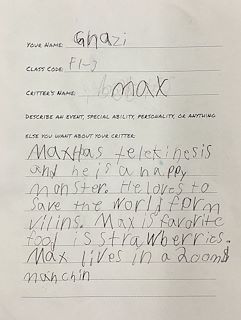 YOUR NAME: Ghazi
CLASS CODE: F1-3
CRITTER'S NAME: max
DESCRIBE AN EVENT, SPECIAL ABILITY, PERSONALITY, OR ANYTHING
ELSE YOU WANT ABOUT YOUR CRITTER:
Max Has telekinesis
and he is a happy
monster. He loves to
save the world form
vilins. Max is favorite
food is strawberries.
Max lives in a